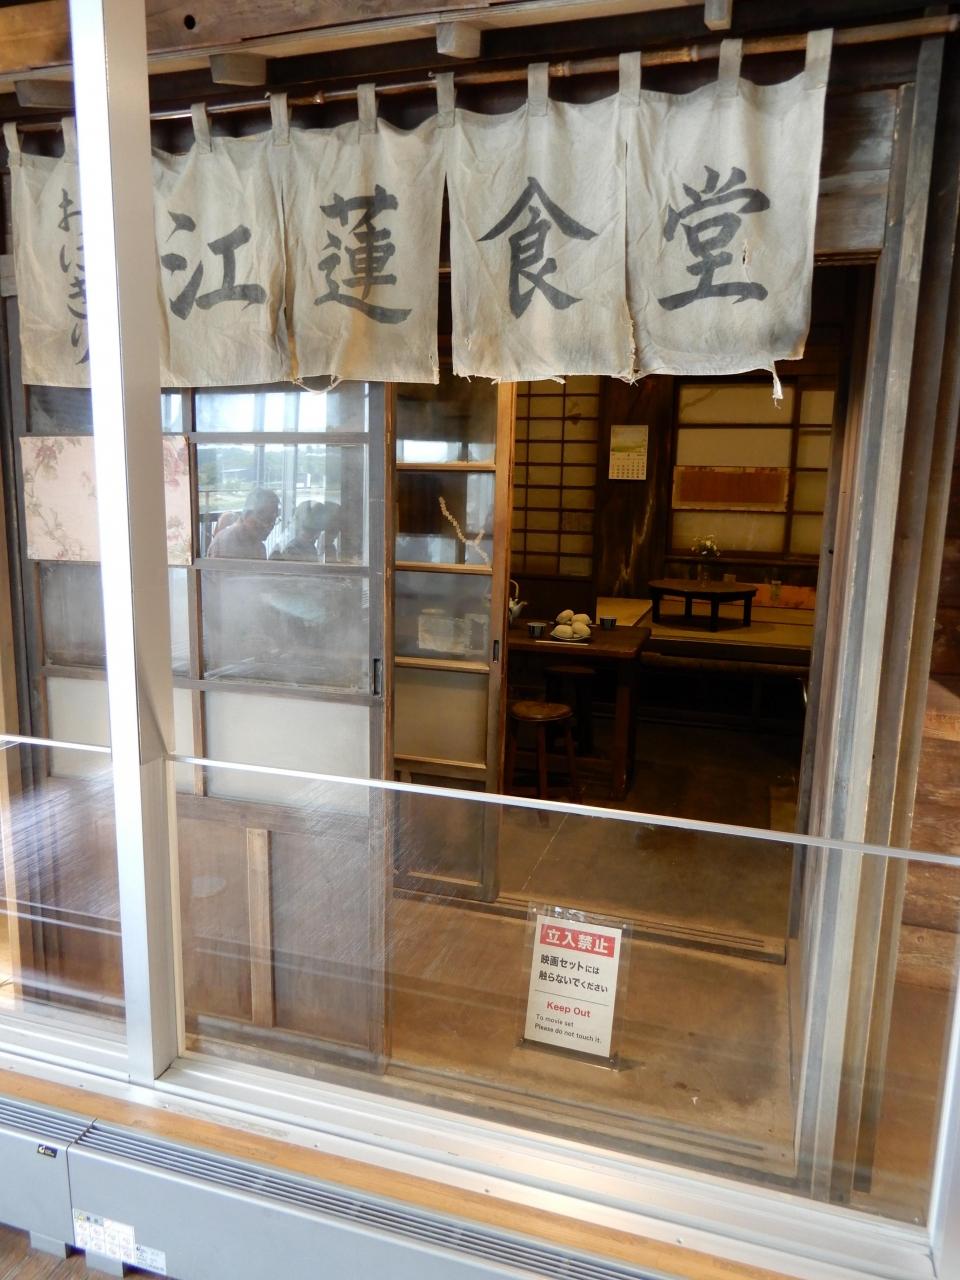 おにぎり
江蓮食堂
立入禁止
映画セットには
触らないでください
Keep Out
To movie set
Please do not touch it.